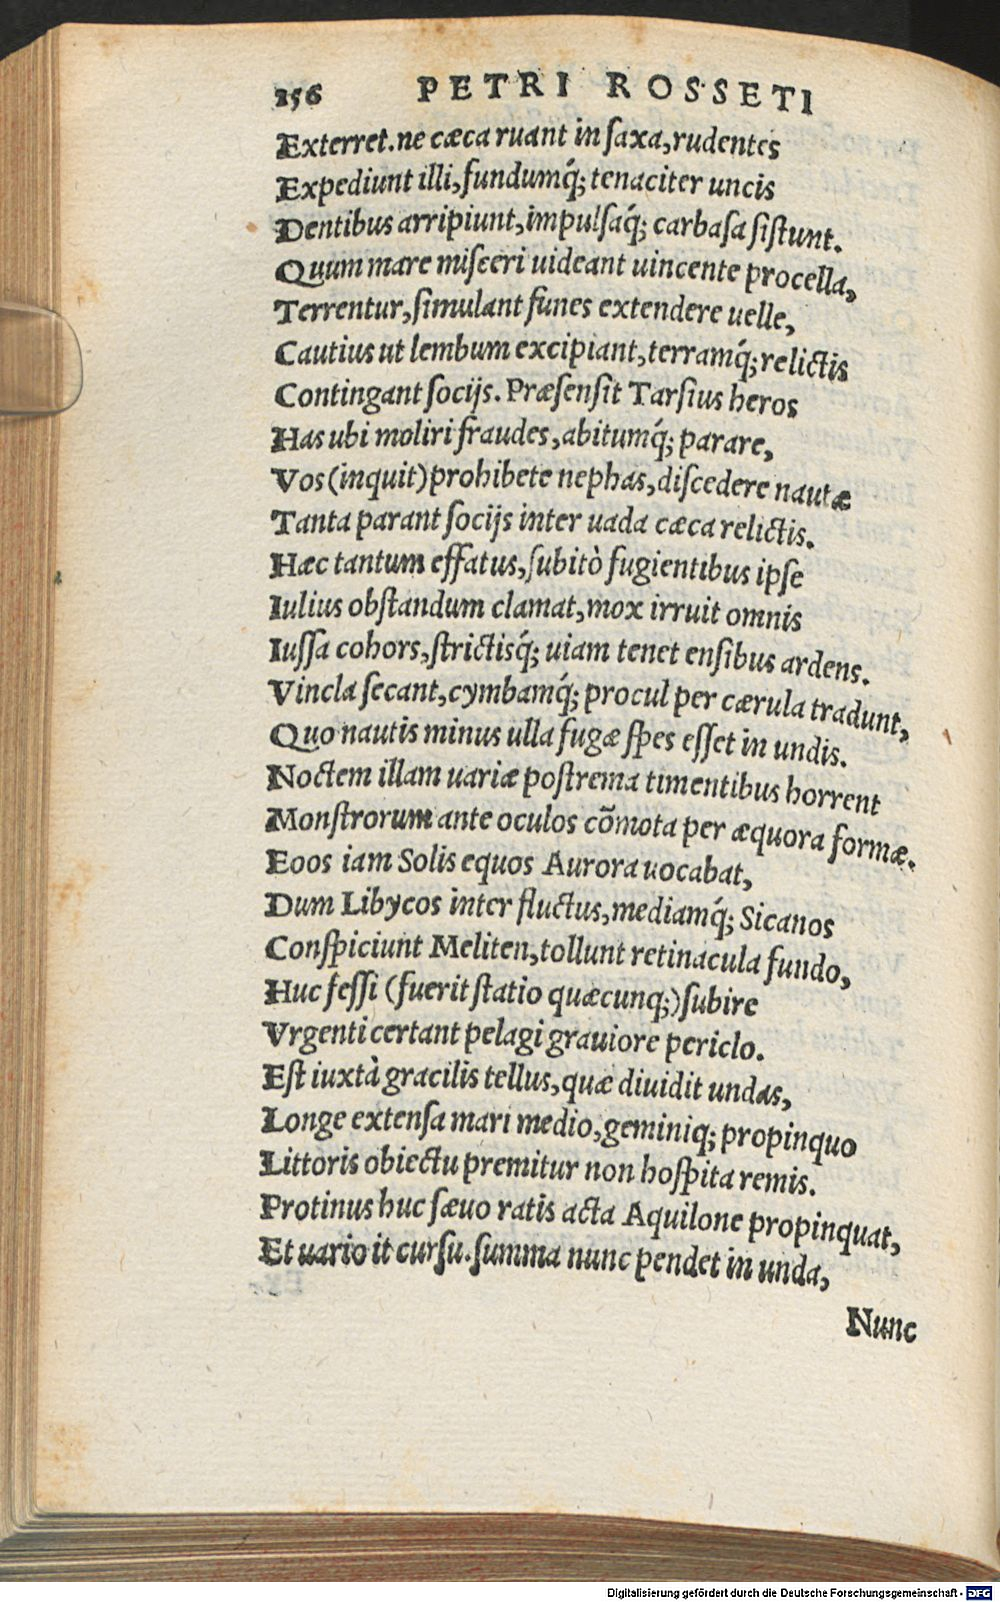 156 PETRI ROSSETI
Exterret. ne cæca ruant in ſaxa, rudentes
Expediunt illi, fundumq́; tenaciter uncis
Dentibus arripiunt, impulſaq́; carbaſa ſiſtunt.
Quum mare miſceri uideant uincente procella,
Terrentur, ſimulant funes extendere uelle,
Cautius ut lembum excipiant, terramq́; relictis
Contingant ſocijs. Præſenſit Tarſius heros
Has ubi moliri fraudes, abitumq́; parare,
Vos (inquit) prohibete nephas, diſcedere nautæ
Tanta parant ſocijs inter uada cæca relictis.
Hæc tantum effatus, ſubitò fugientibus ipſe
Iulius obſtandum clamat, mox irruit omnis
Iuſſa cohors, ſtrictisq́; uiam tenet enſibus ardens.
Vincla ſecant, cymbamq́; procul per cærula tradunt,
Quo nautis minus ulla fugæ ſpes eſſet in undis.
Noctem illam uariæ poſtrema timentibus horrent
Monſtrorum ante oculos cõmota per æquora formæ.
Eoos iam Solis equos Aurora uocabat,
Dum Libycos inter fluctus, mediamq́; Sicanos
Conſpiciunt Meliten, tollunt retinacula fundo,
Huc feſſi (fuerit ſtatio quæcunq;) ſubire
Vrgenti certant pelagi grauiore periclo.
Eſt iuxtà gracilis tellus, quæ diuidit undas,
Longe extenſa mari medio, geminiq; propinquo
Littoris obiectu premitur non hoſpita remis.
Protinus huc ſæuo ratis acta Aquilone propinquat,
Et uario it curſu. ſumma nunc pendet in unda,
Nunc
Digitalisierung gefördert durch die Deutsche Forschungsgemeinschaft - DFG